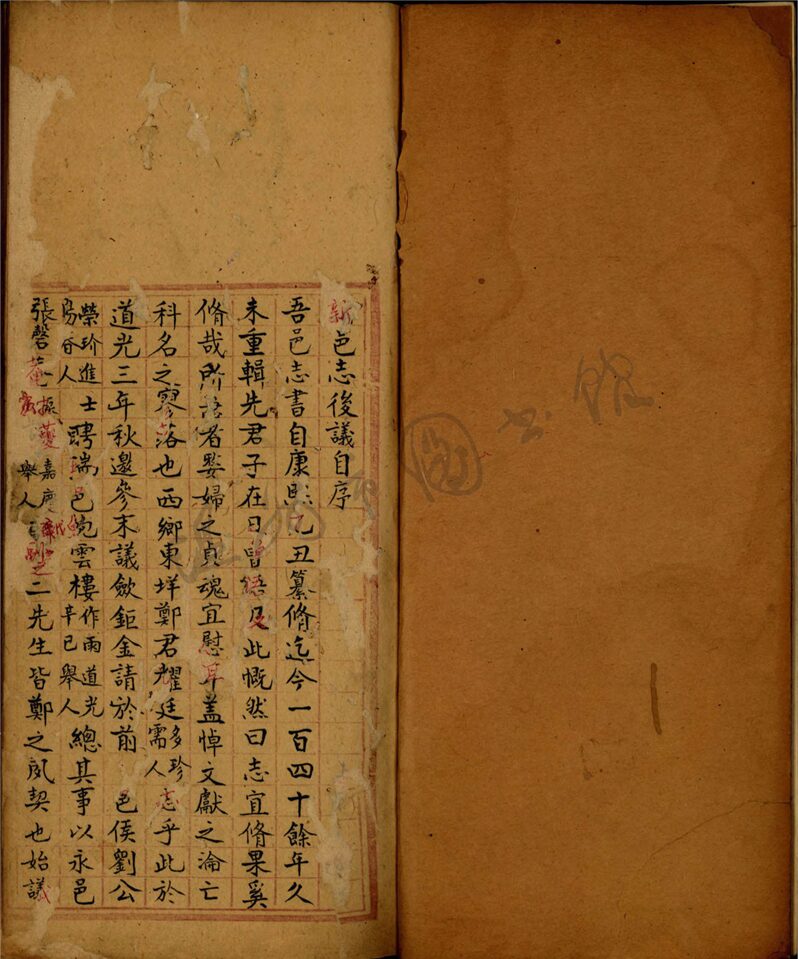 新邑志後議自序
吾邑志書自康熙乙丑纂脩迄今一百四十餘年久
未重輯先君子在日曾語及此慨然曰志宜脩果奚
脩哉所 者嫠婦之貞魂宜慰耳蓋悼文獻之淪亡
科名之寥落也西鄉東垟鄭君耀廷需多人珍志乎此於
道光三年秋邀參末議歛鉅金請於前 邑侯劉公
榮玠進士陽谷人聘瑞邑 雲樓作雨道光辛巳舉人總其事以永邑
張磬菴振夔嘉慶舉人 二先生皆鄭之夙契也始議
圖書館